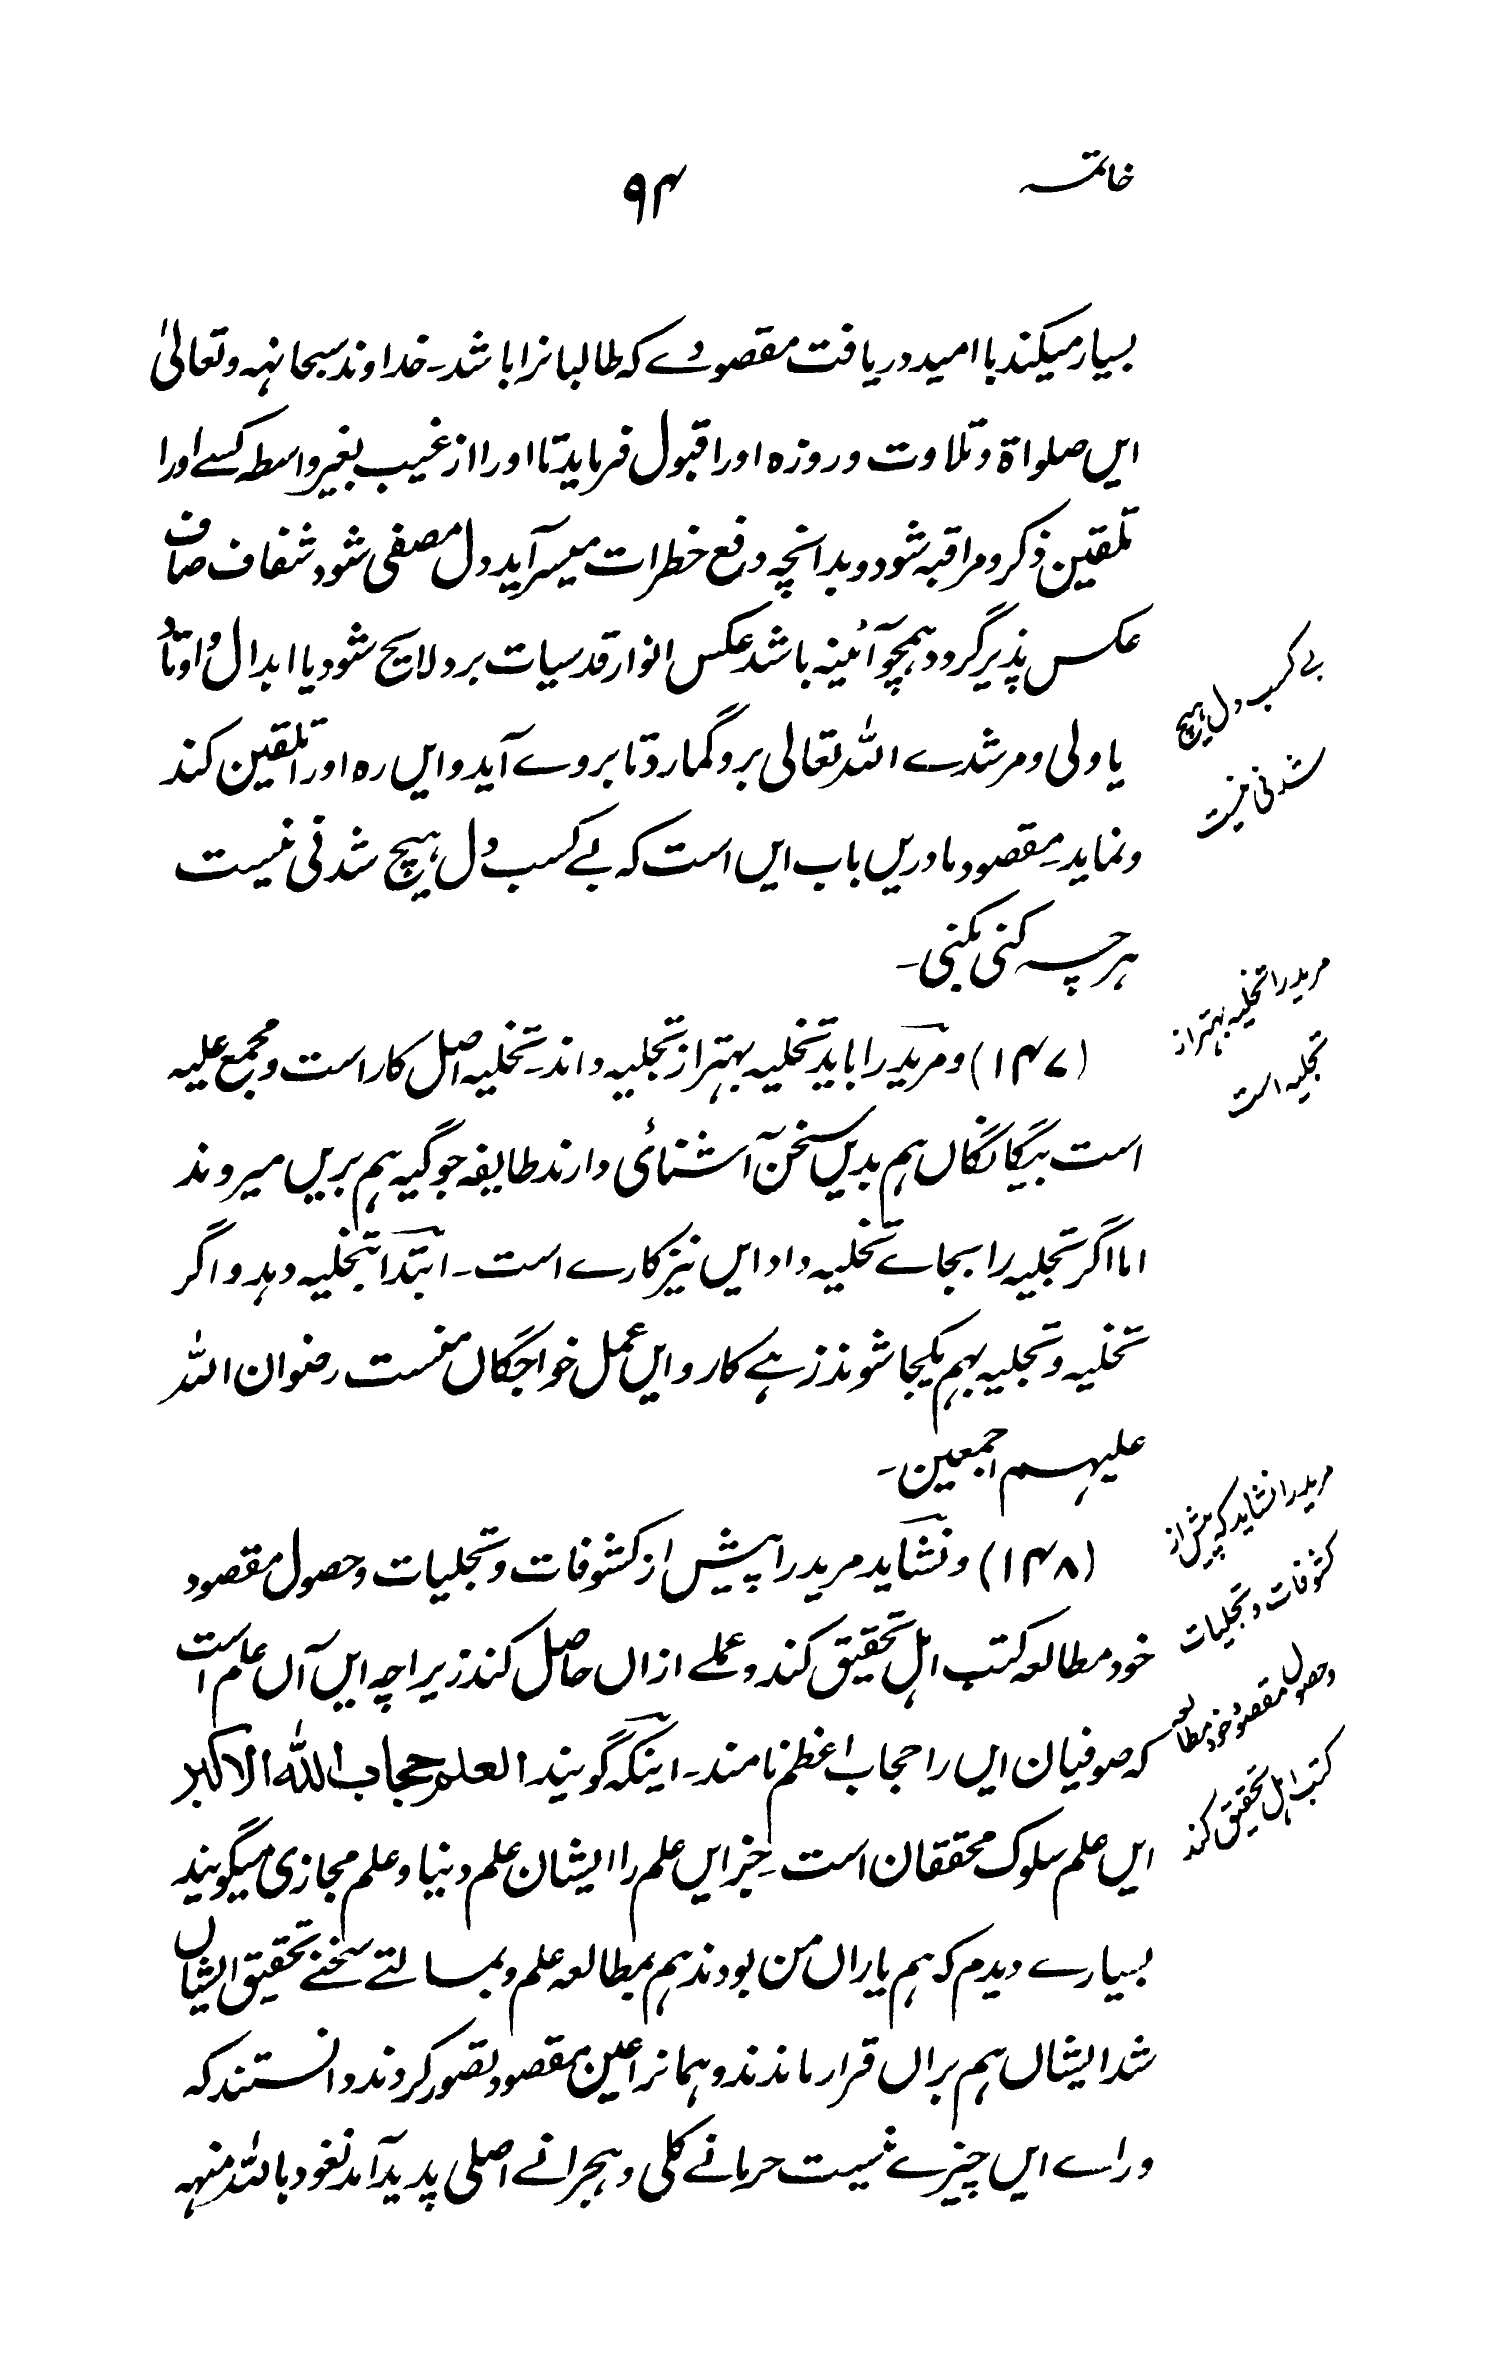 خاتمہ
۹۴
بسیار میکند با امید دریافت مقصودے کہ طالبانرا باشد۔ خداوند سبحانہ وتعالیٰ
ایں صلواۃ وتلاوت وروزہ اورا قبول فرماید تا اورا از غیب بغیر واسطہ کسے اورا
تلقین ذکر ومراقبہ شود وبدانچہ دفع خطرات میسر آید دل مصفی شود شفاف صاف
عکس پذیر گردد ہمچو آئینہ باشد عکس انوار قدسیات برو لایح شود یا ابدال و اوتاد
یا ولی و مرشدے اللہ تعالی برو گمارد تا بروے آید و ایں رہ اورا تلقین کند
ونماید۔ مقصود ما دریں باب ایں است کہ بے کسب دل ہیچ شدنی نیست
ہرچہ کنی بکنی۔
بے کسب دل ہیچ
شدنی نیست
(۱۴۷) ومرید را باید تخلیہ بہتر از تجلیہ داند۔ تخلیہ اصل کار است و مجمع علیہ
است بیگانگاں ہم بدیں سخن آشنائی دارند طایفہ جوگیہ ہم بریں میروند
اما اگر تجلیہ را بجاے تخلیہ داد ایں نیز کارے است۔ ابتدا بتخلیہ دہد و اگر
تخلیہ و تجلیہ بہم یکجا شوند زہے کار و ایں عمل خواجگاں منست رضوان اللہ
علیہم اجمعین۔
مرید را تخلیہ بہتر از
تجلیہ است
(۱۴۸) ونشاید مرید را پیش از کشوفات و تجلیات و حصول مقصود
خود مطالعہ کتب اہل تحقیق کند و عملے ازاں حاصل کند زیراچہ ایں آں علم است
کہ صوفیان ایں را حجاب اعظم نامند۔ اینکہ گویند العلم حجاب اللہ الاکبر
ایں علم سلوک محققان است۔ جز ایں علم را ایشان علم دنیا و علم مجازی میگویند
بسیارے دیدم کہ ہم یاراں من بودند ہم بمطالعہ علم و بمسالتے سخنے تحقیق ایشاں
شد ایشاں ہم براں قرار ماندند و ہمانرا عین مقصود تصور کردند دانستند کہ
وراے ایں چیزے نیست حرمانے کلی و ہجرانے اصلی پدید آمد نعوذ باللہ منہہ
مرید را نشاید کہ پیش از
کشوفات و تجلیات
و حصول مقصود خود مطالعہ
کتب اہل تحقیق کند